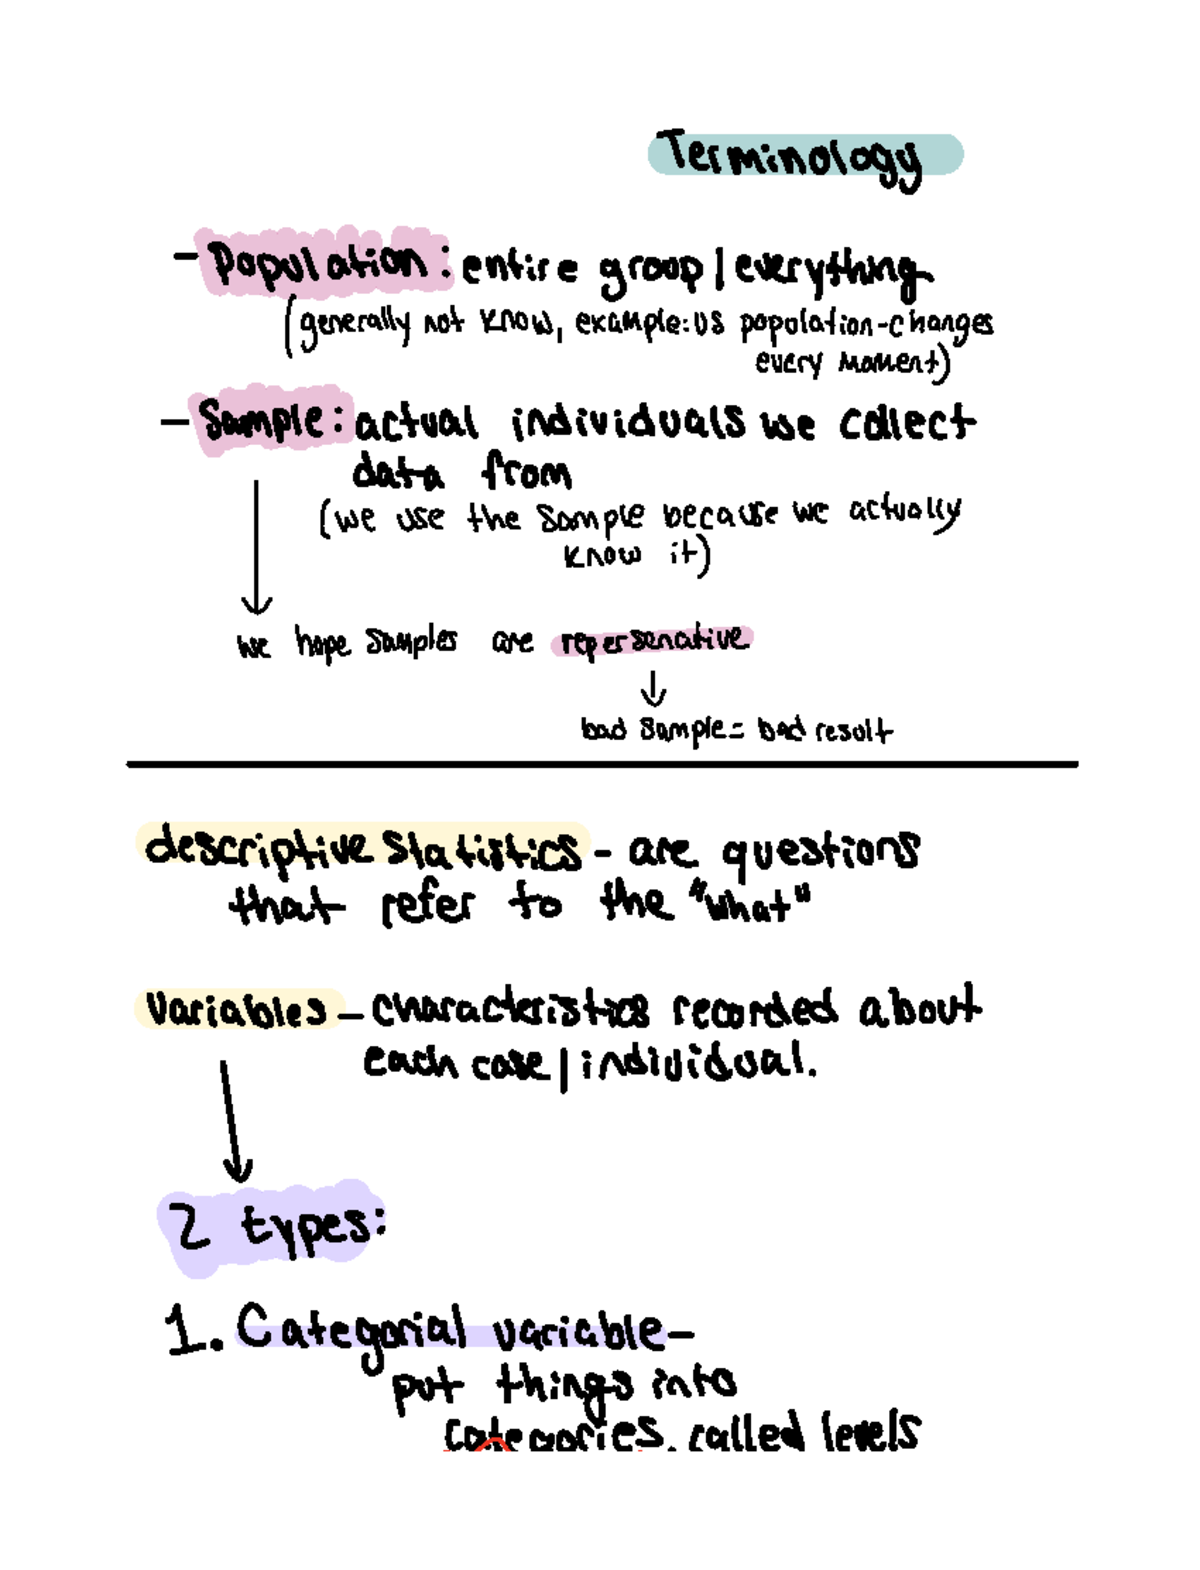 Terminology
- Population: entire group/everything
(generally not know, example: US population-changes
every moment)
- Sample: actual individuals we collect
data from
(we use the sample because we actually
know it)
we hope samples are repersenative
bad sample = bad result
descriptive statistics - are questions
that refer to the "what"
Variables - characteristics recorded about
each case/individual.
2 types:
1. Categorial variable-
put things into
categories, called levels